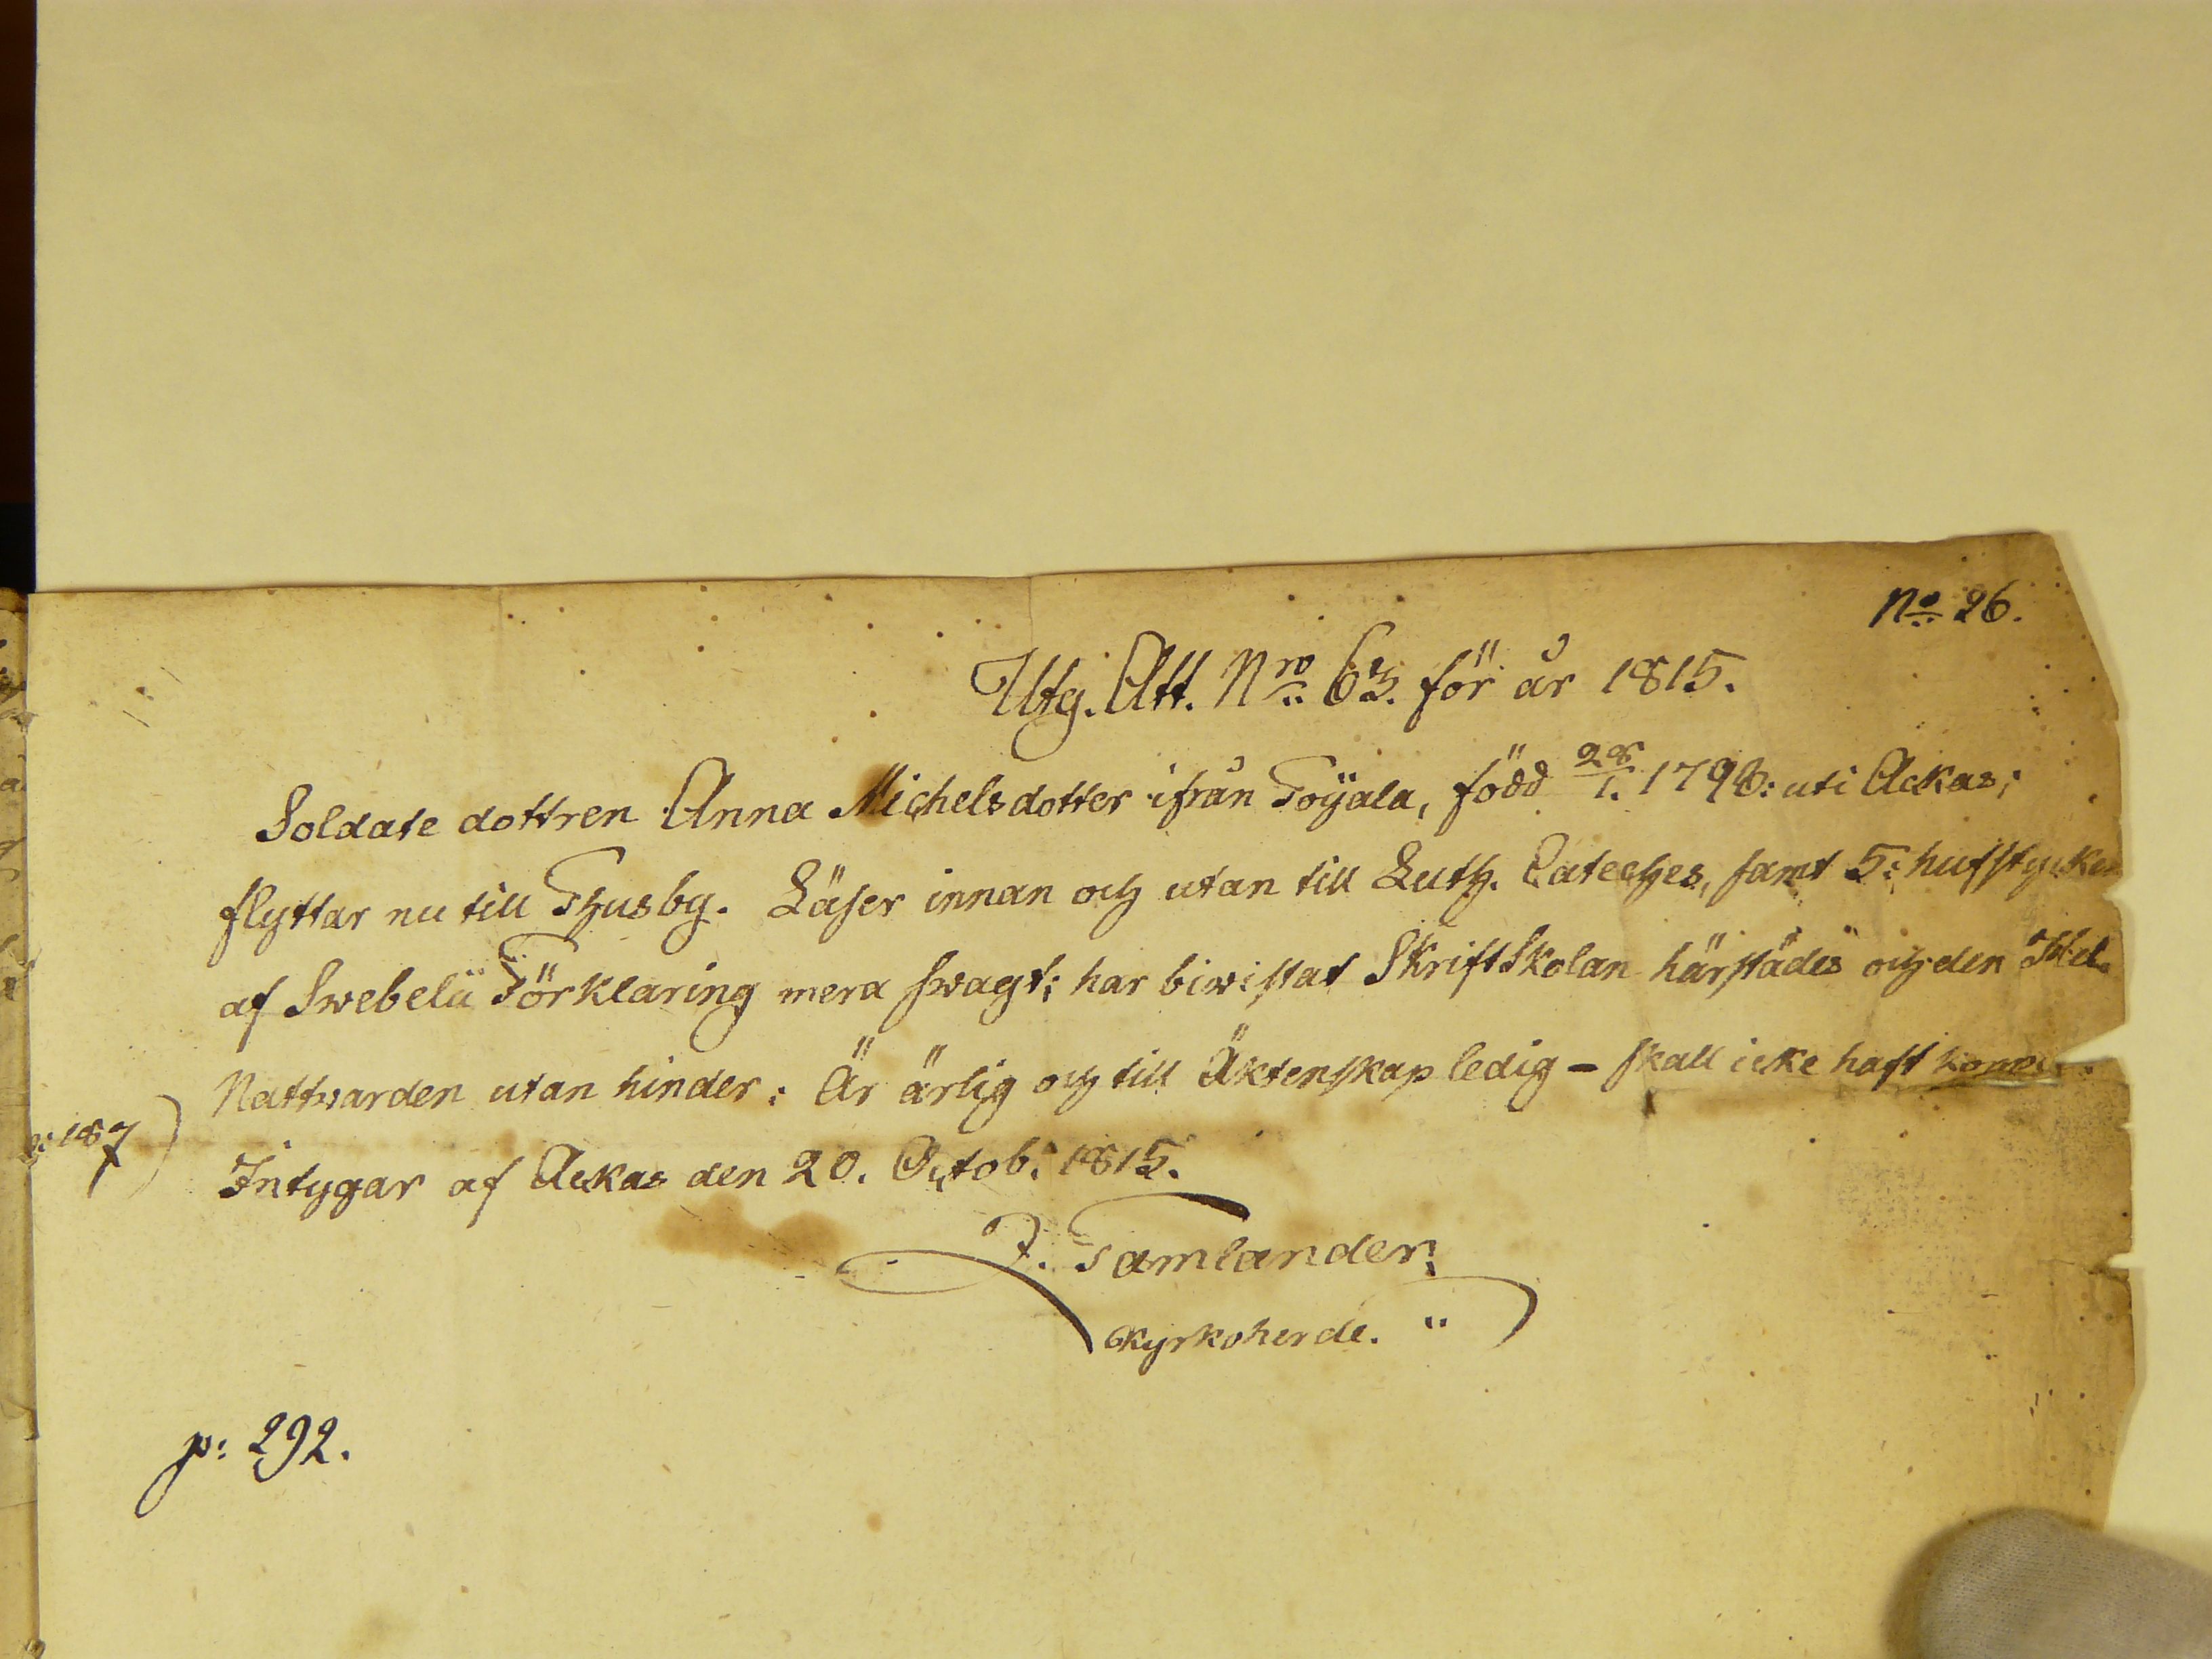 No 26.
Utg. Att. Nro 63. för år 1815.
Soldate dottren Anna Michelsdotter ifrån Toÿala, född 28/1. 1798: uti Ackas;
flyttar nu till Thusby. Läser innan och utan till Luth. Cateches, samt 5: hufstycken
af Swebelii Förklaring mera swagt; har biwistat SkriftSkolan härstädes och den Hel.
Nattwarden utan hinder: Är ärlig och till Äktenskap ledig - skall icke haft
187)
Intygar af Ackas den 20. Octob: 1815.
J. Tamlander.
Kyrkoherde.
p: 292.